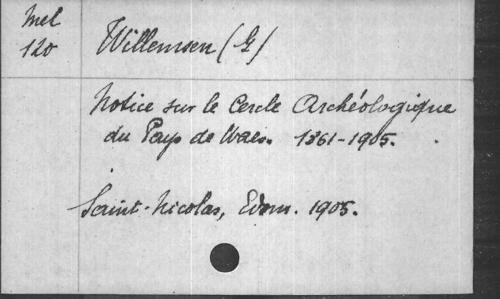 Mel
120
Willemsen (G)
Notice sur le Cercle Archéologique
du Pays de Waes. 1861-1905.
Saint-Nicolas, Edom. 1905.